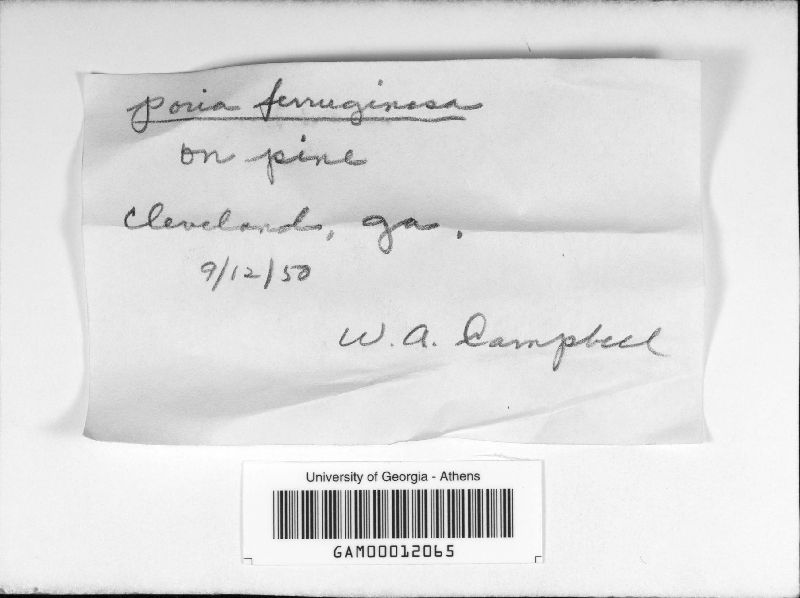 poria ferruginosa
on pine
Cleveland, Ga.
9/12/50
W. A. Campbell
University of Georgia - Athens
GAM00012065